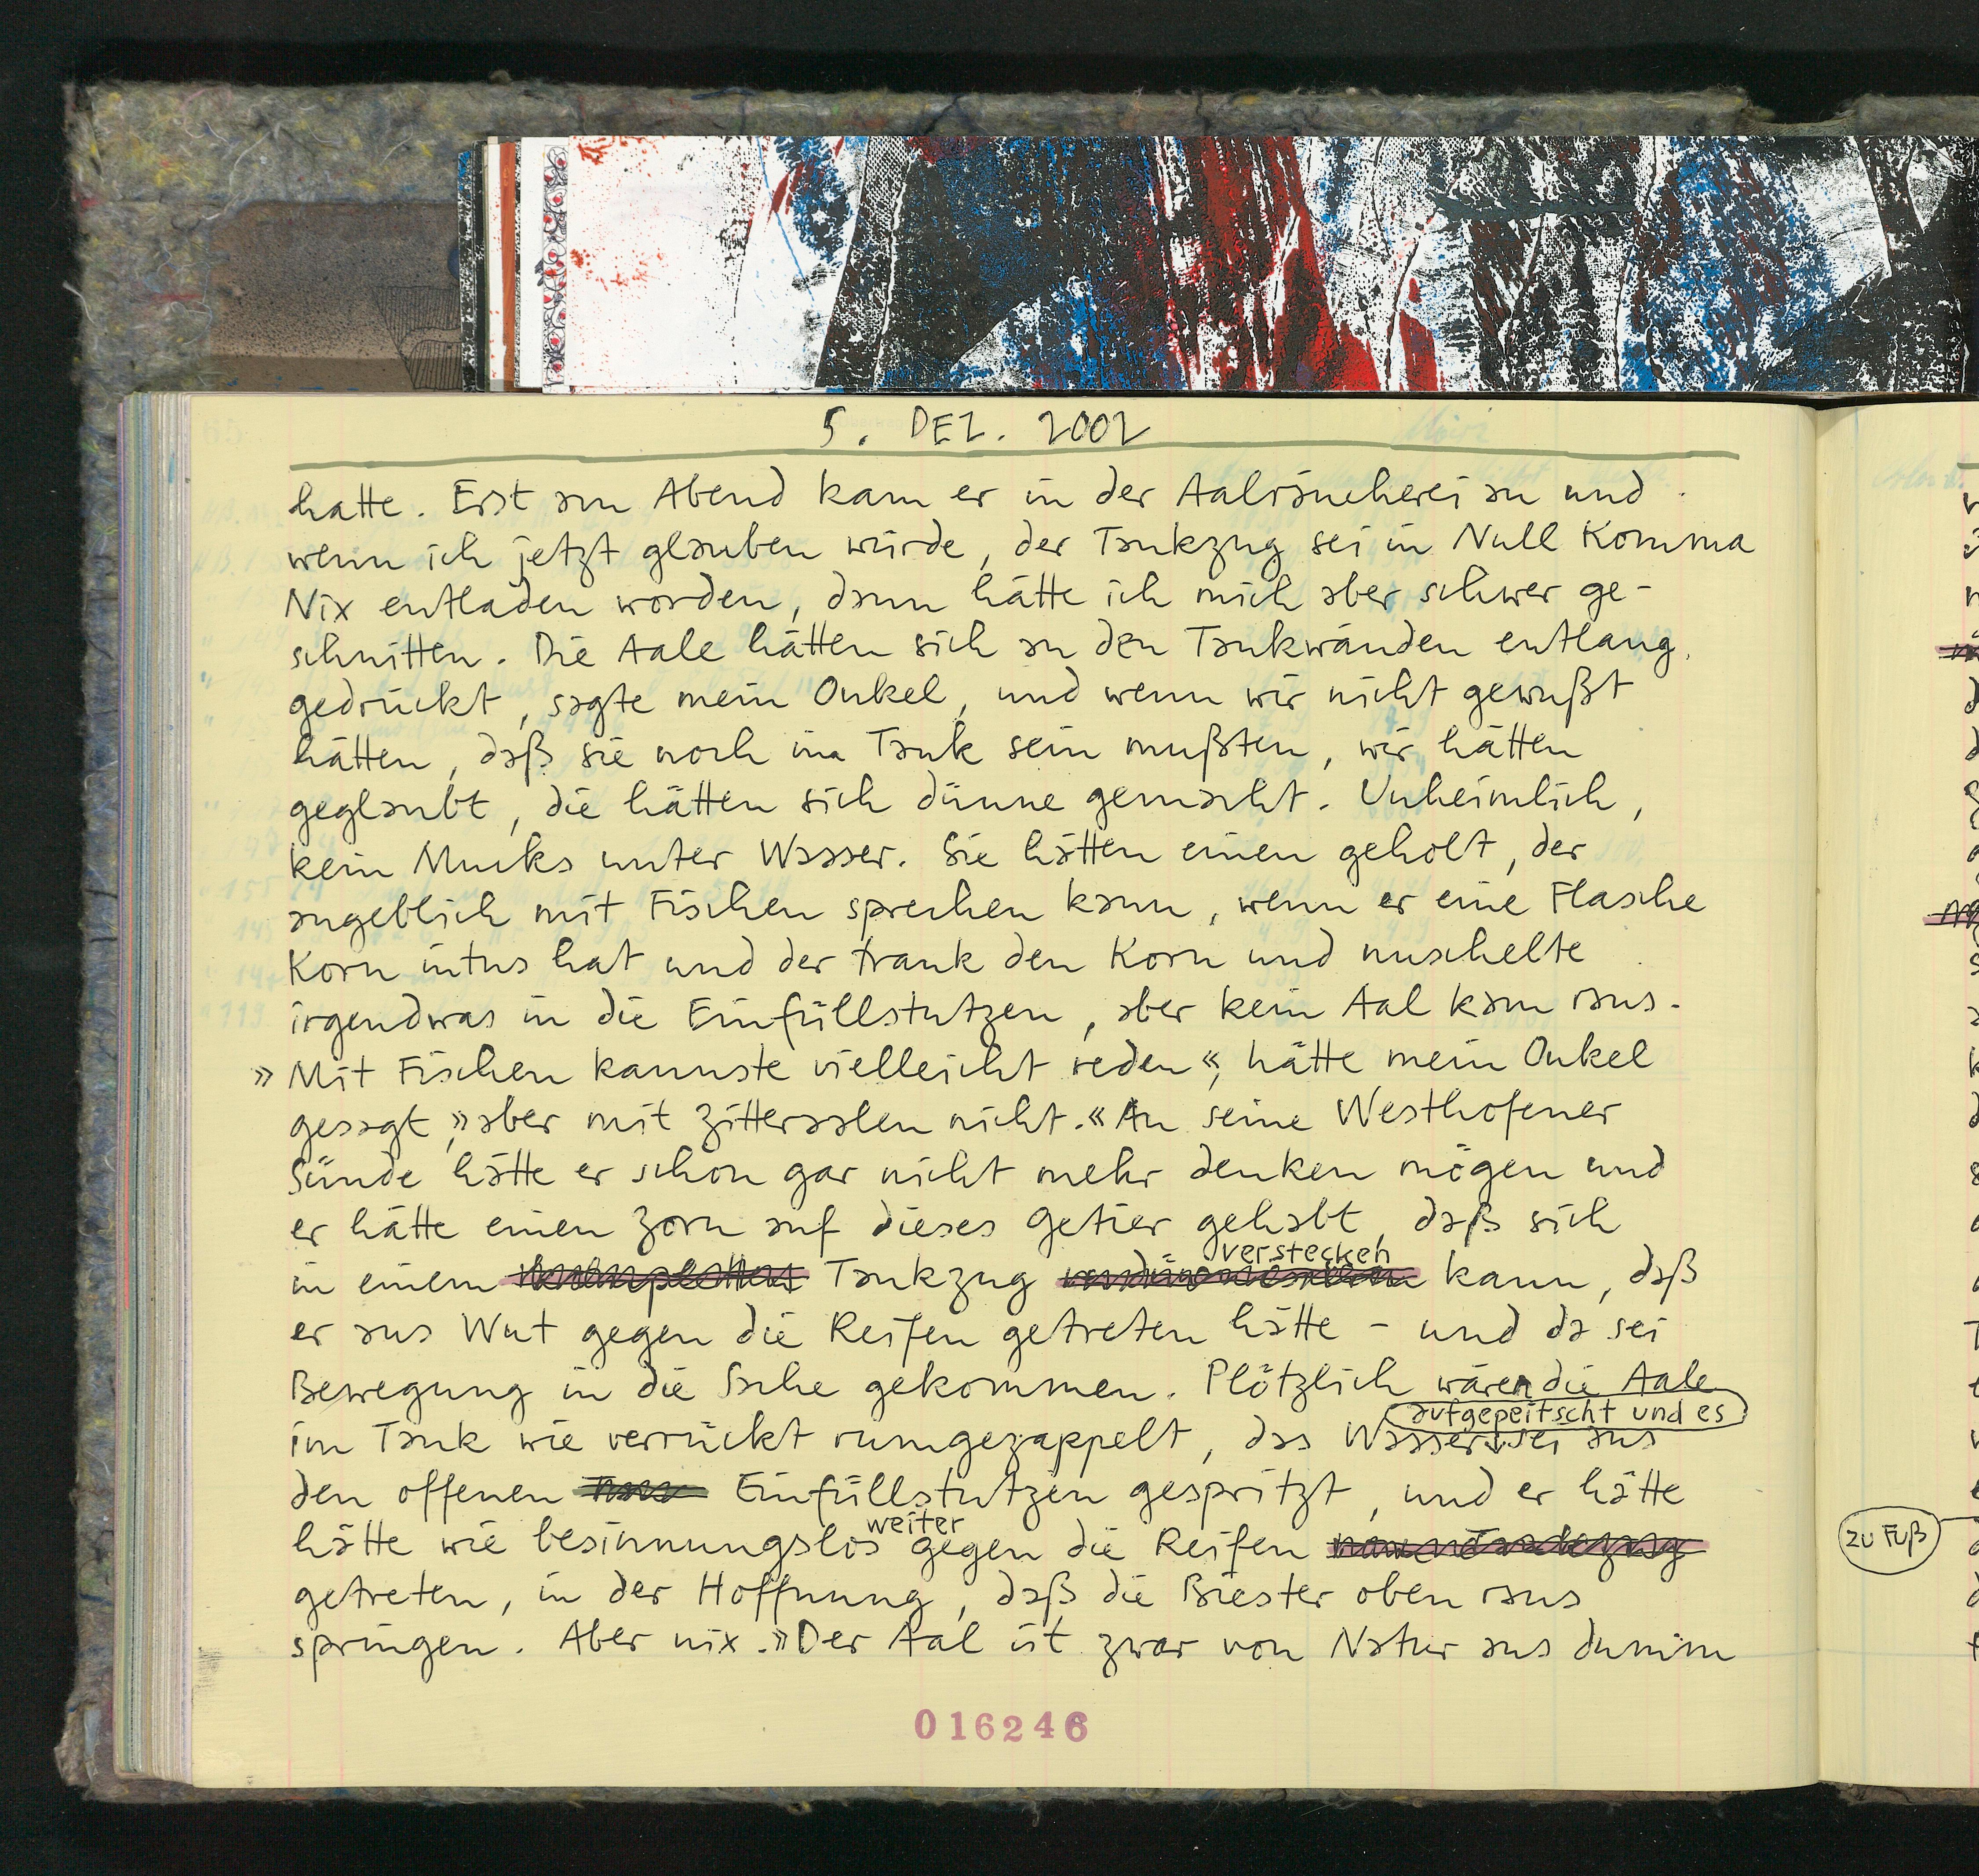 5. DEZ. 2002
hatte. Erst am Abend kam er in der Aalräucherei an und
wenn ich jetzt glauben würde, der Tankzug sei in Null Komma
Nix entladen worden, dann hätte ich mich aber schwer ge-
schnitten. Die Aale hätten sich an den Tankwänden entlang
gedrückt, sagte mein Onkel, und wenn wir nicht gewußt
hätten, daß sie noch im Tank sein mußten, wir hätten
geglaubt, die hätten sich dünne gemacht. Unheimlich,
kein Mucks unter Wasser. Sie hätten einen geholt, der
angeblich mit Fischen sprechen kann, wenn er eine Flasche
Korn intus hat und der trank den Korn und nuschelte
irgendwas in die Einfüllstutzen, aber kein Aal kam raus.
»Mit Fischen kannste vielleicht reden«, hätte mein Onkel
gesagt, »aber mit Zitteraalen nicht.« An seine Westhofener
Sünde hätte er schon gar nicht mehr denken mögen und
er hätte einen Zorn auf dieses Getier gehabt daß sich
versteckeh
in einem Tankzug kann, daß
er aus Wut gegen die Reifen getreten hätte – und da sei
Bewegung in die Sache gekommen. Plötzlich wären die Aale
aufgepeitscht und es
im Tank wie verrückt rumgezappelt, das Wasser sei aus
den offenen Einfüllstutzen gespritzt, und er hätte
weiter
hätte wie besinnungslos gegen die Reifen
zu Fuß
getreten, in der Hoffnung, daß die Biester oben raus
springen. Aber nix. »Der Aal ist zwar von Natur aus dumm
016246